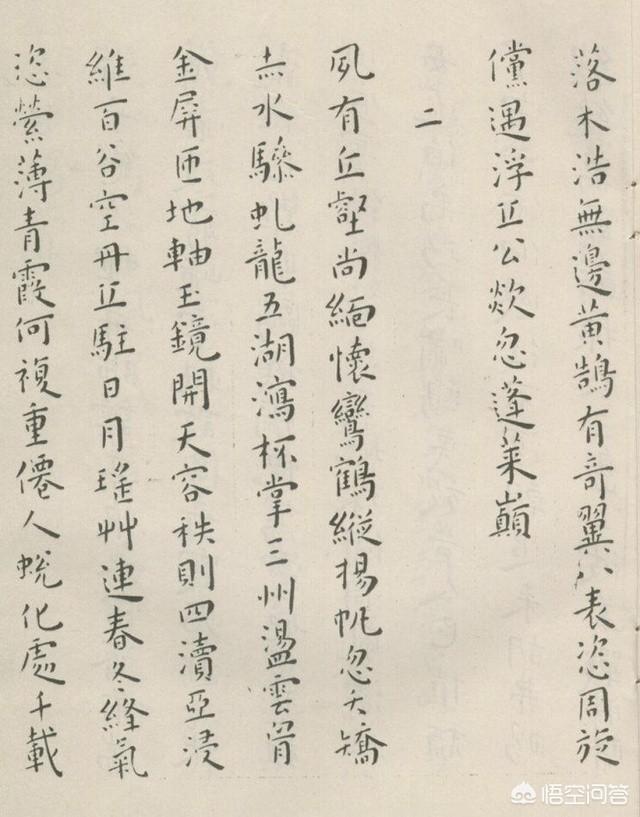 落木浩無邊黄鵠有奇翼八表恣周旋
儻遇浮丘公欻忽蓬萊巔
二
夙有丘壑尚緬懷鸞鶴縱揚帆忽夭矯
赤水驂虬龍五湖瀉杯掌三州盪雲胷
金屏匝地軸玉鏡開天容秩則四瀆亞浸
維百谷空丹丘駐日月瑤艸連春冬絳氣
恣縈薄青霞何複重僊人蛻化處千載
悟空问答